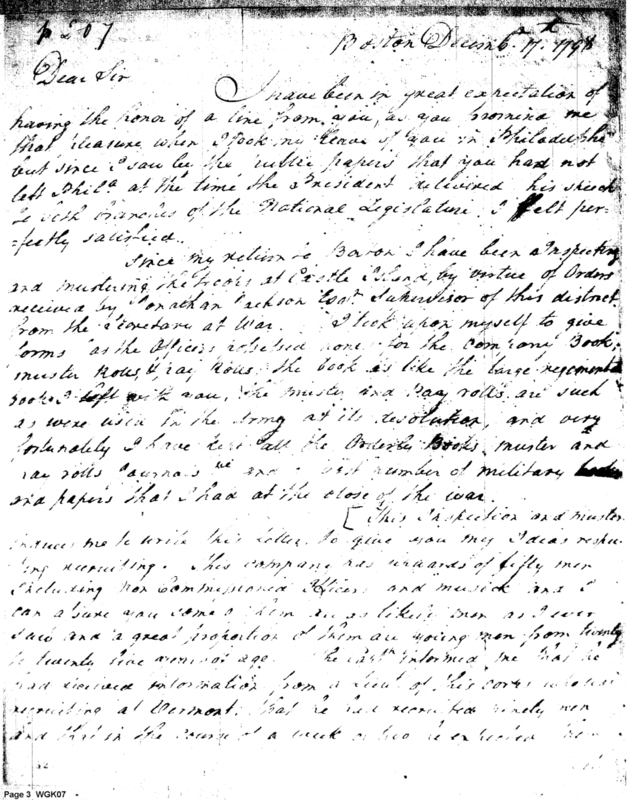 p 207
Boston Decemb.r 17.th 1798
Dear Sir
I have been in great expectation of
having the honor of a line from you, as you promised me
that pleasure when I took my leave of you in Philadelphia
but since I saw by the public papers that you had not
left Phil.a at the time the President delivered his speech
to both branches of the National Legislature, I felt per-
-fectly satisfied.
Since my return to Boston I have been Inspecting
and mustering the troops at Castle Island, by virtue of Orders
received by Jonathan Jackson Esq.r Supervisor of this district
from the Secretary at War. I took upon myself to give
forms as the Officers possessed none for the company Book,
muster Rolls & pay Rolls, the book is like the large regimental
book I left with you, the muster and Pay rolls are such
as were used in the Army at its desolution, and very
fortunately I have here all the Orderly Books, muster and
pay rolls Journals and number of military
and papers that I had at the close of the war.
[This Inspection and muster
induces me to write this letter to give you my Ideas respec-
ting recruiting. This company has upwards of fifty men
including Non Commissioned Officers and musick and I
can assure you some of them are as likely men as I ever
saw and a great proportion of them are young men from twenty
to twenty five years of age. The Cap.t informed me that he
had received information from a Lieu.t of this corps who was
recruiting at Vermont, that he had recruited ninety men
and that in the course of a week or two he expected
Page 3 WGK07